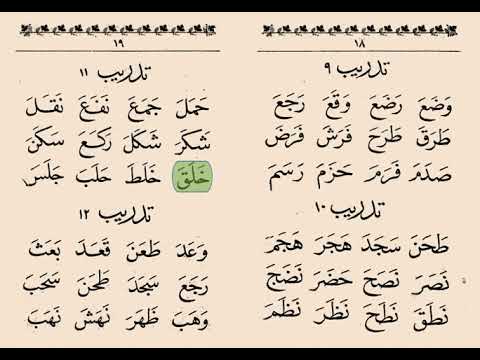 ١٨
تدريب ٩
وَضَعَ رَضَعَ وَقَعَ رَجَعَ
طَرَقَ طَرَحَ فَرَشَ فَرَضَ
صَدَمَ فَرَمَ حَزَمَ رَسَمَ
تدريب ١٠
طَحَنَ سَجَدَ هَجَرَ هَجَمَ
نَصَرَ نَصَحَ حَضَرَ نَضَجَ
نَطَقَ نَطَحَ نَظَرَ نَظَمَ
١٩
تدريب ١١
حَمَلَ جَمَعَ نَفَعَ نَقَلَ
شَكَرَ شَكَلَ رَكَعَ سَكَنَ
خَلَقَ خَلَطَ حَلَبَ جَلَسَ
تدريب ١٢
وَعَدَ طَعَنَ قَعَدَ بَعَثَ
رَجَعَ سَجَدَ طَحَنَ سَحَبَ
وَهَبَ ظَهَرَ نَهَشَ نَهَبَ